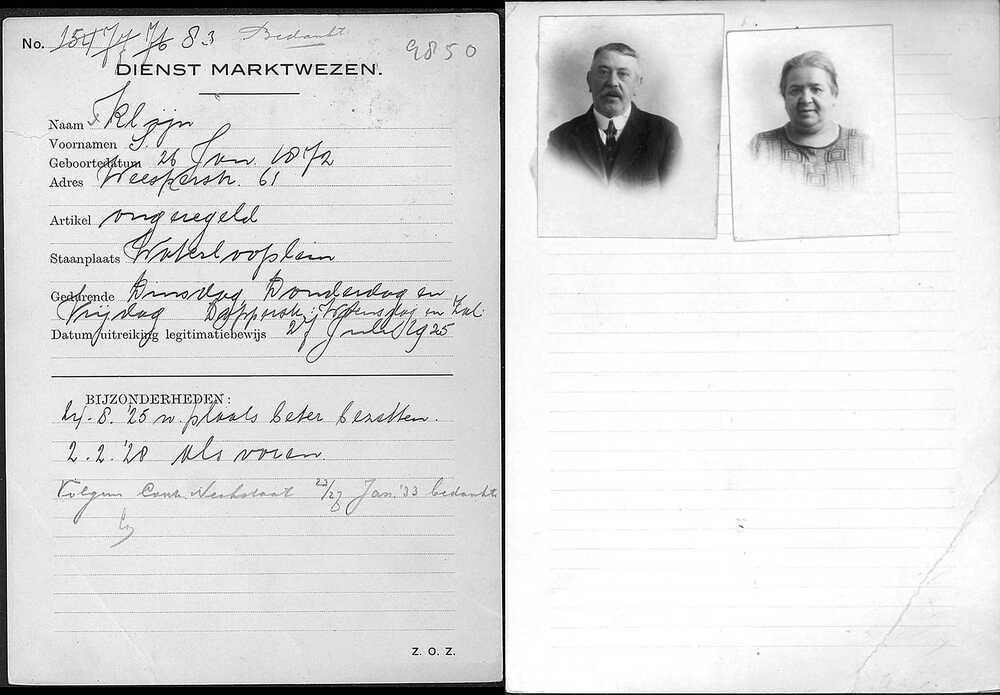 No. 154 77 76 83 Bedankt
9850
DIENST MARKTWEZEN.
Naam Kleijn
Voornamen S.
Geboortedatum 26 Jan. 1872
Adres Weesperstr. 61
Artikel ongeregeld
Staanplaats Waterlooplein
Gedurende Dinsdag, Donderdag en
Vrijdag Dapperstr; Woensdag en Zat.
Datum uitreiking legitimatiebewijs 27 Juli 1925
BIJZONDERHEDEN:
8. '25 m. plaats beter bezetten.
2.2.'28 als voren.
Volgens Contr. 23/27 Jan. '33 bedankt
Z. O. Z.